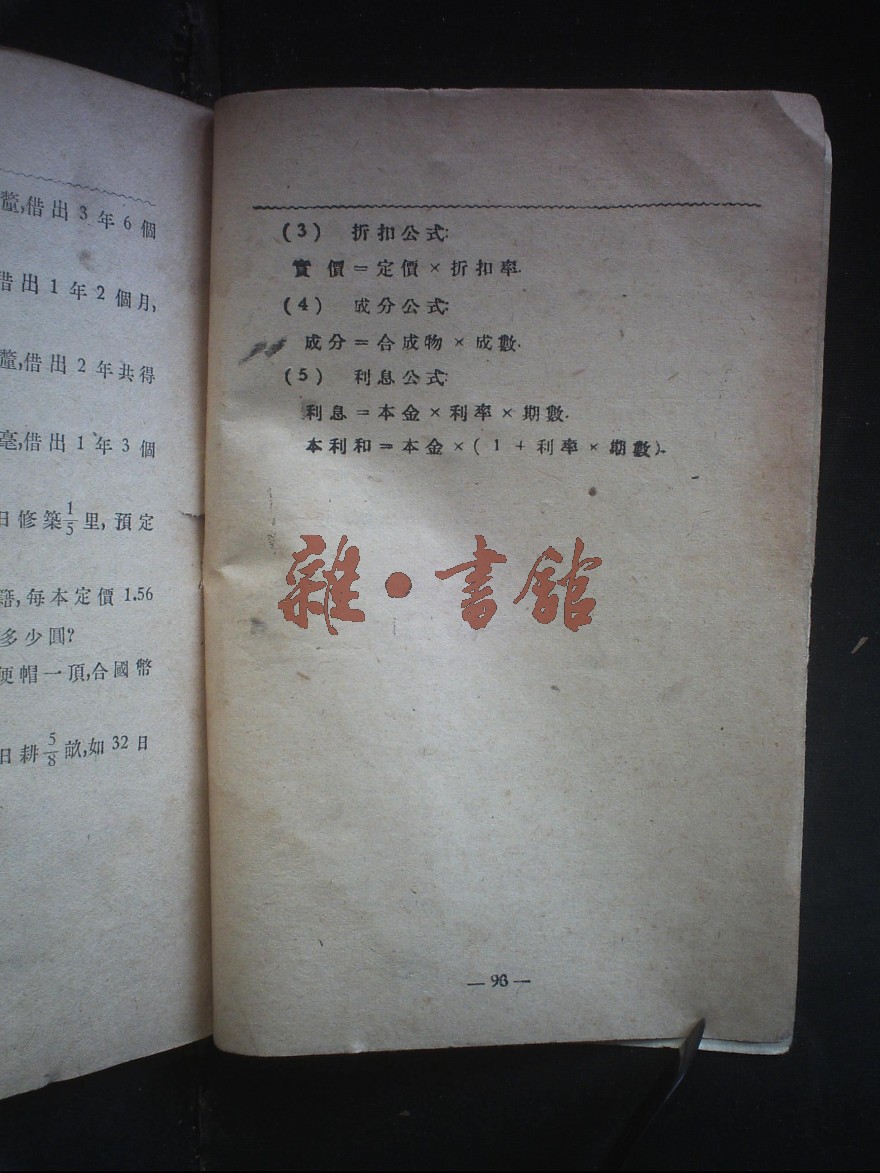 釐,借出 3 年 6 個
借出 1 年 2 個月,
釐,借出 2 年共得
毫,借出 1 年 3 個
日修築1/5里,預定
籍,每本定價 1.56
多少圓?
便帽一頂,合國幣
日耕5/8畝,如 32 日
(3) 折扣公式:
實價=定價×折扣率.
(4) 成分公式:
成分=合成物×成數.
(5) 利息公式:
利息=本金×利率×期數.
本利和=本金×(1+利率×期數).
雜·書館